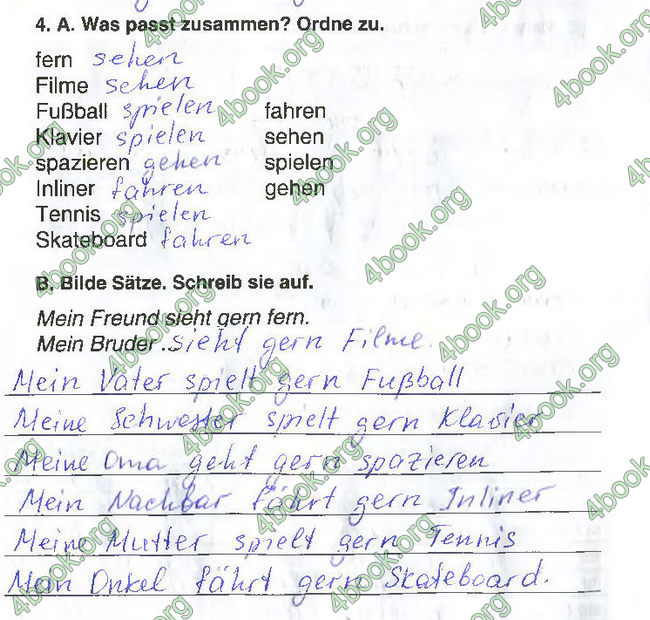 4. A. Was passt zusammen? Ordne zu.
fern sehen
Filme sehen
Fußball spielen fahren
Klavier spielen sehen
spazieren gehen spielen
Inliner fahren gehen
Tennis spielen
Skateboard fahren
B. Bilde Sätze. Schreib sie auf.
Mein Freund sieht gern fern.
Mein Bruder ...sieht gern Filme.
Mein Vater spielt gern Fußball
Meine Schwester spielt gern Klavier
Meine Oma geht gern spazieren
Mein Nachbar fährt gern Inliner
Meine Mutter spielt gern Tennis
Mein Onkel fährt gern Skateboard.
4book.org